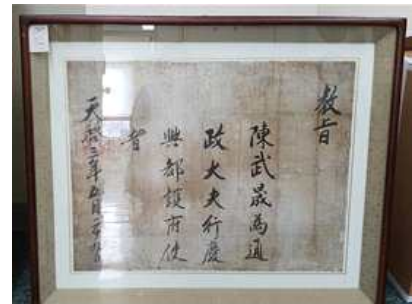 教旨
陳武晟為通
政大夫行慶
興都護府使
者
天啓二年五月